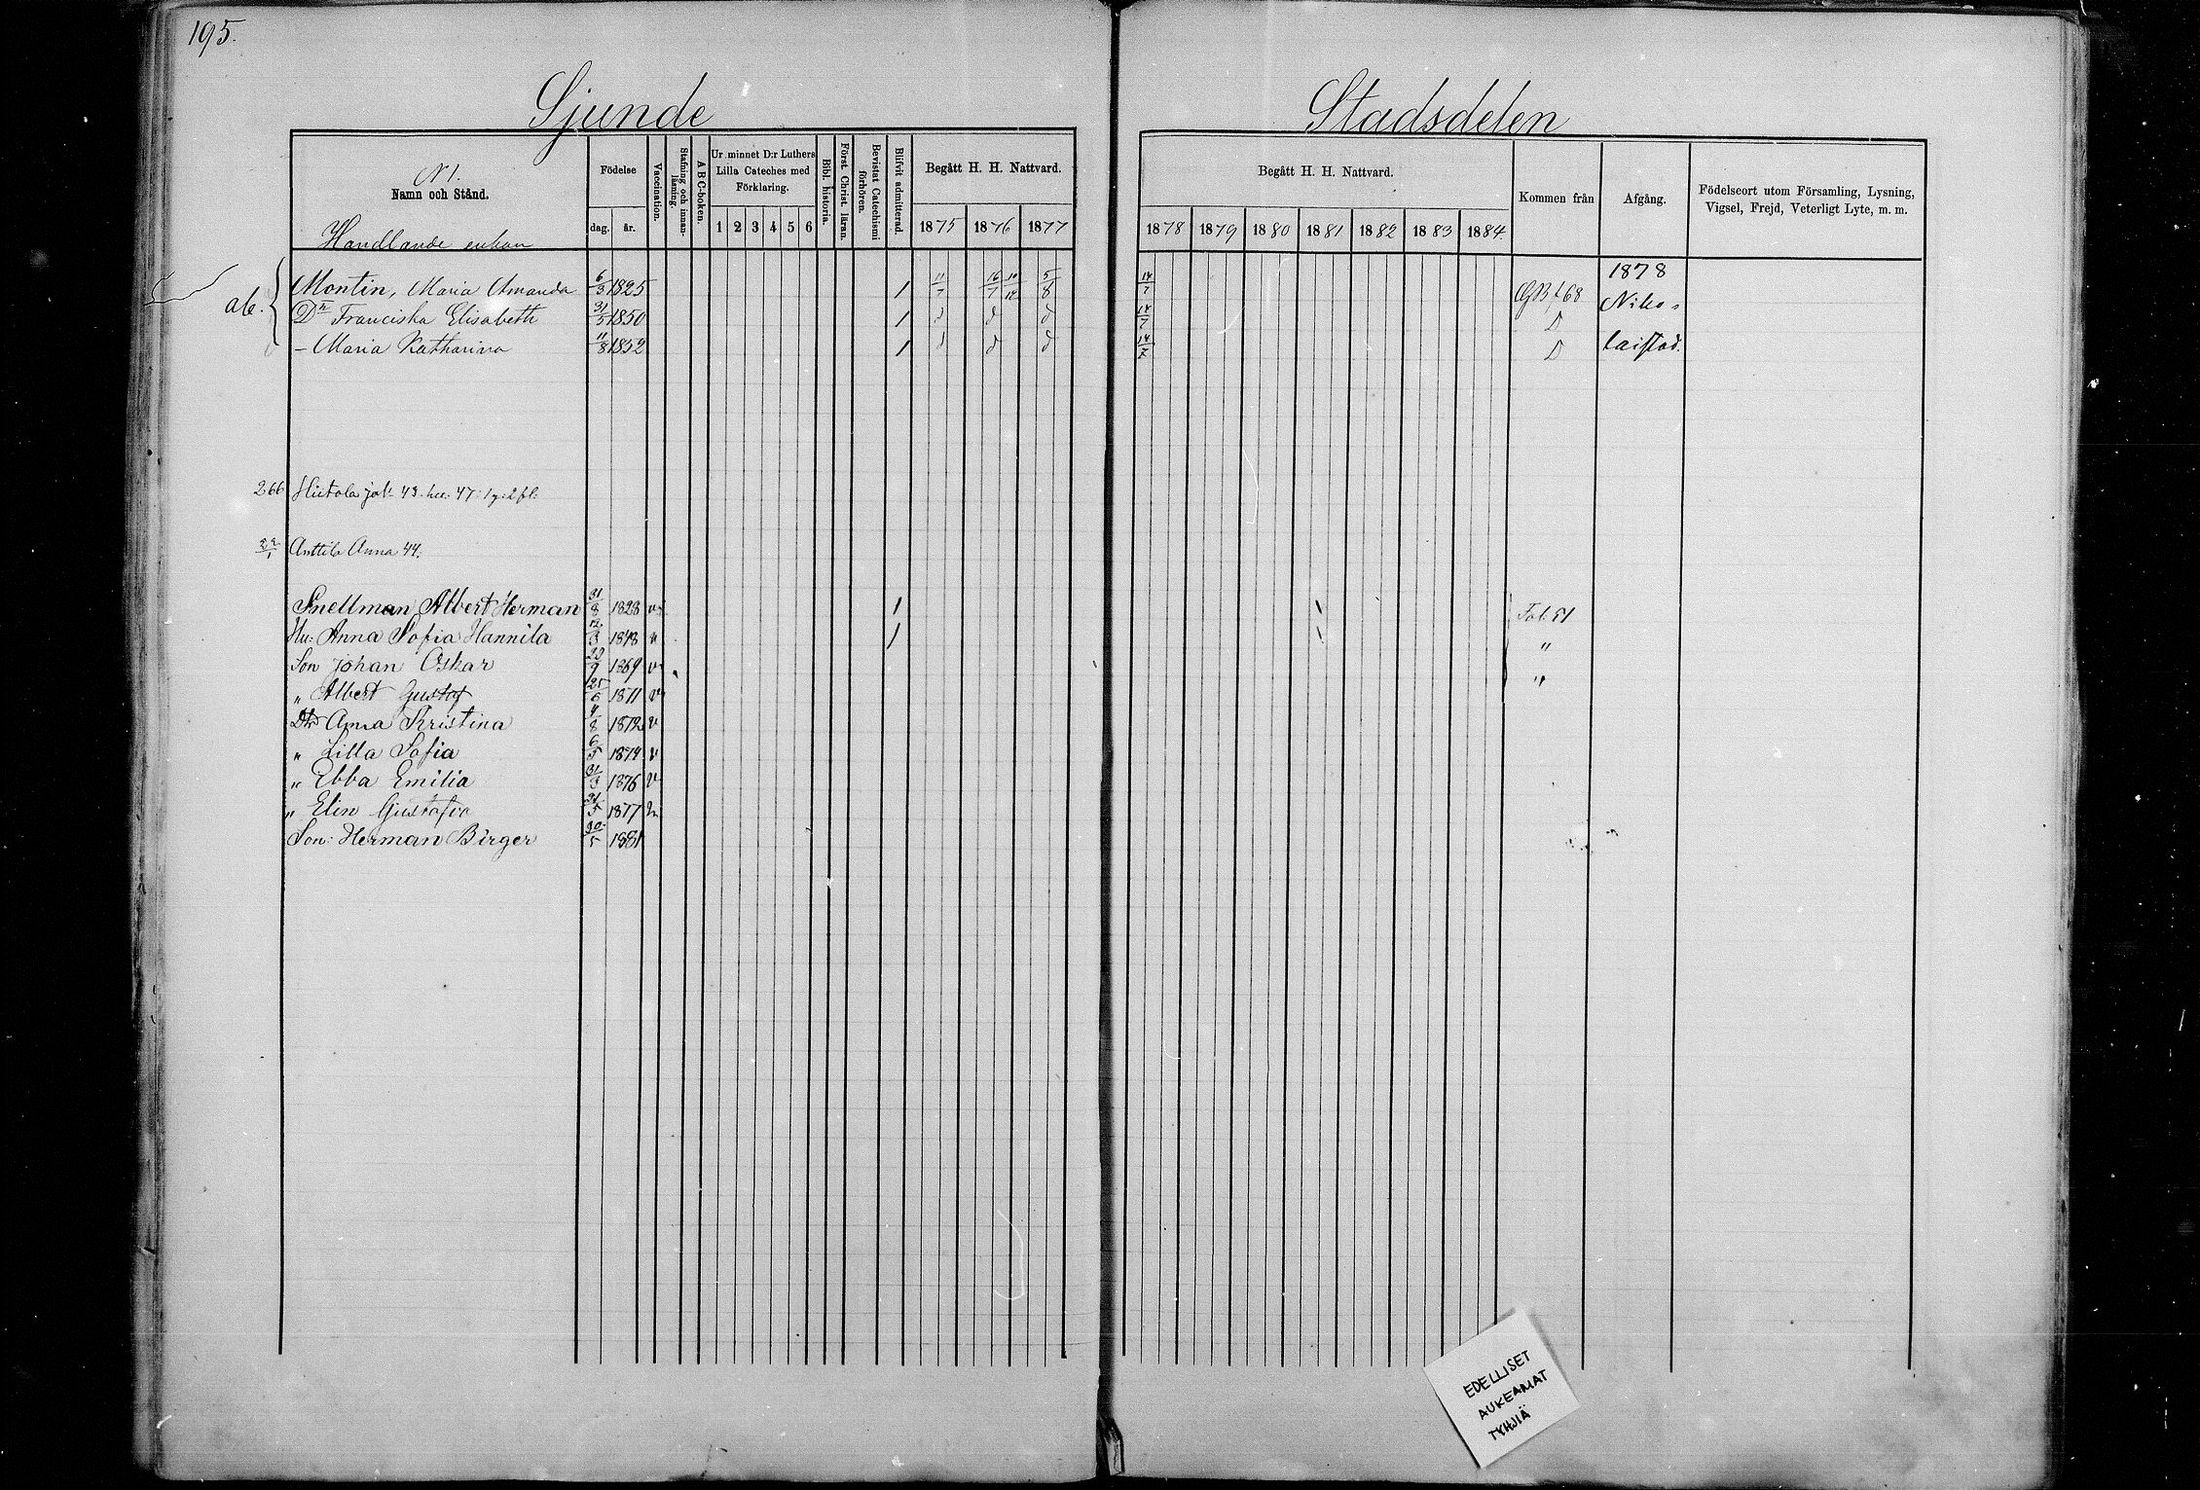 195.
Sjunde Stadsdelen
N 1.
Namn och Stånd.
Handlande enkan
Födelse
dag. år.
Vaccination.
Stafning och innanläsning.
A B C-boken.
Ur minnet D:r Luthers Lilla Cateches med Förklaring.
1 2 3 4 5 6
Bibl. historia.
Först. Christ. läran.
Bevistat Catechismi förhören.
Blifvit admitterad.
Begått H. H. Nattvard.
1875 1876 1877
Begått H. H. Nattvard.
1878 1879 1880 1881 1882 1883 1884
Kommen från
Afgång.
Födelseort utom Församling, Lysning, Vigsel, Frejd, Veterligt Lyte, m. m.
Montin, Maria Amanda 6/3 1825 1 11/7 16/7 10/12 5/8 14/7 GB, f 68 1878
Dr Franciska Elisabeth 31/5 1850 1 d d d 14/7 D Niko-
– Maria Katharina 11/8 1852 1 d d d 14/7 D laistad.
266 Hietola jak. 43. hu. 47.
Anttila Anna 44.
Snellman, Albert Herman 31/8 1828 v 1 Fol. 51
Hu: Anna Sofia Hannila 12/3 1848 v 1 "
Son Johan Oskar 1869 v "
" Albert Gustaf 25/6 1871 v
Dtr Anna Kristina 4/8 1872 v
" Lilla Sofia 6/5 1874 v
" Ebba Emilia 31/3 1876 v
" Elin Gustafva 31/5 1877 v
Son: Herman Birger 30/5 1881
EDELLISET
AUKEAMAT
TYHJIÄ